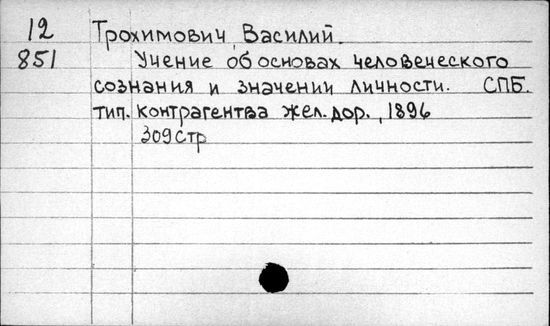 12 Трохимович, Василий.
851 Учение об основах человеческого
сознания и значении личности. СПБ.
тип. контрагентва жел. дор., 1896
309 стр